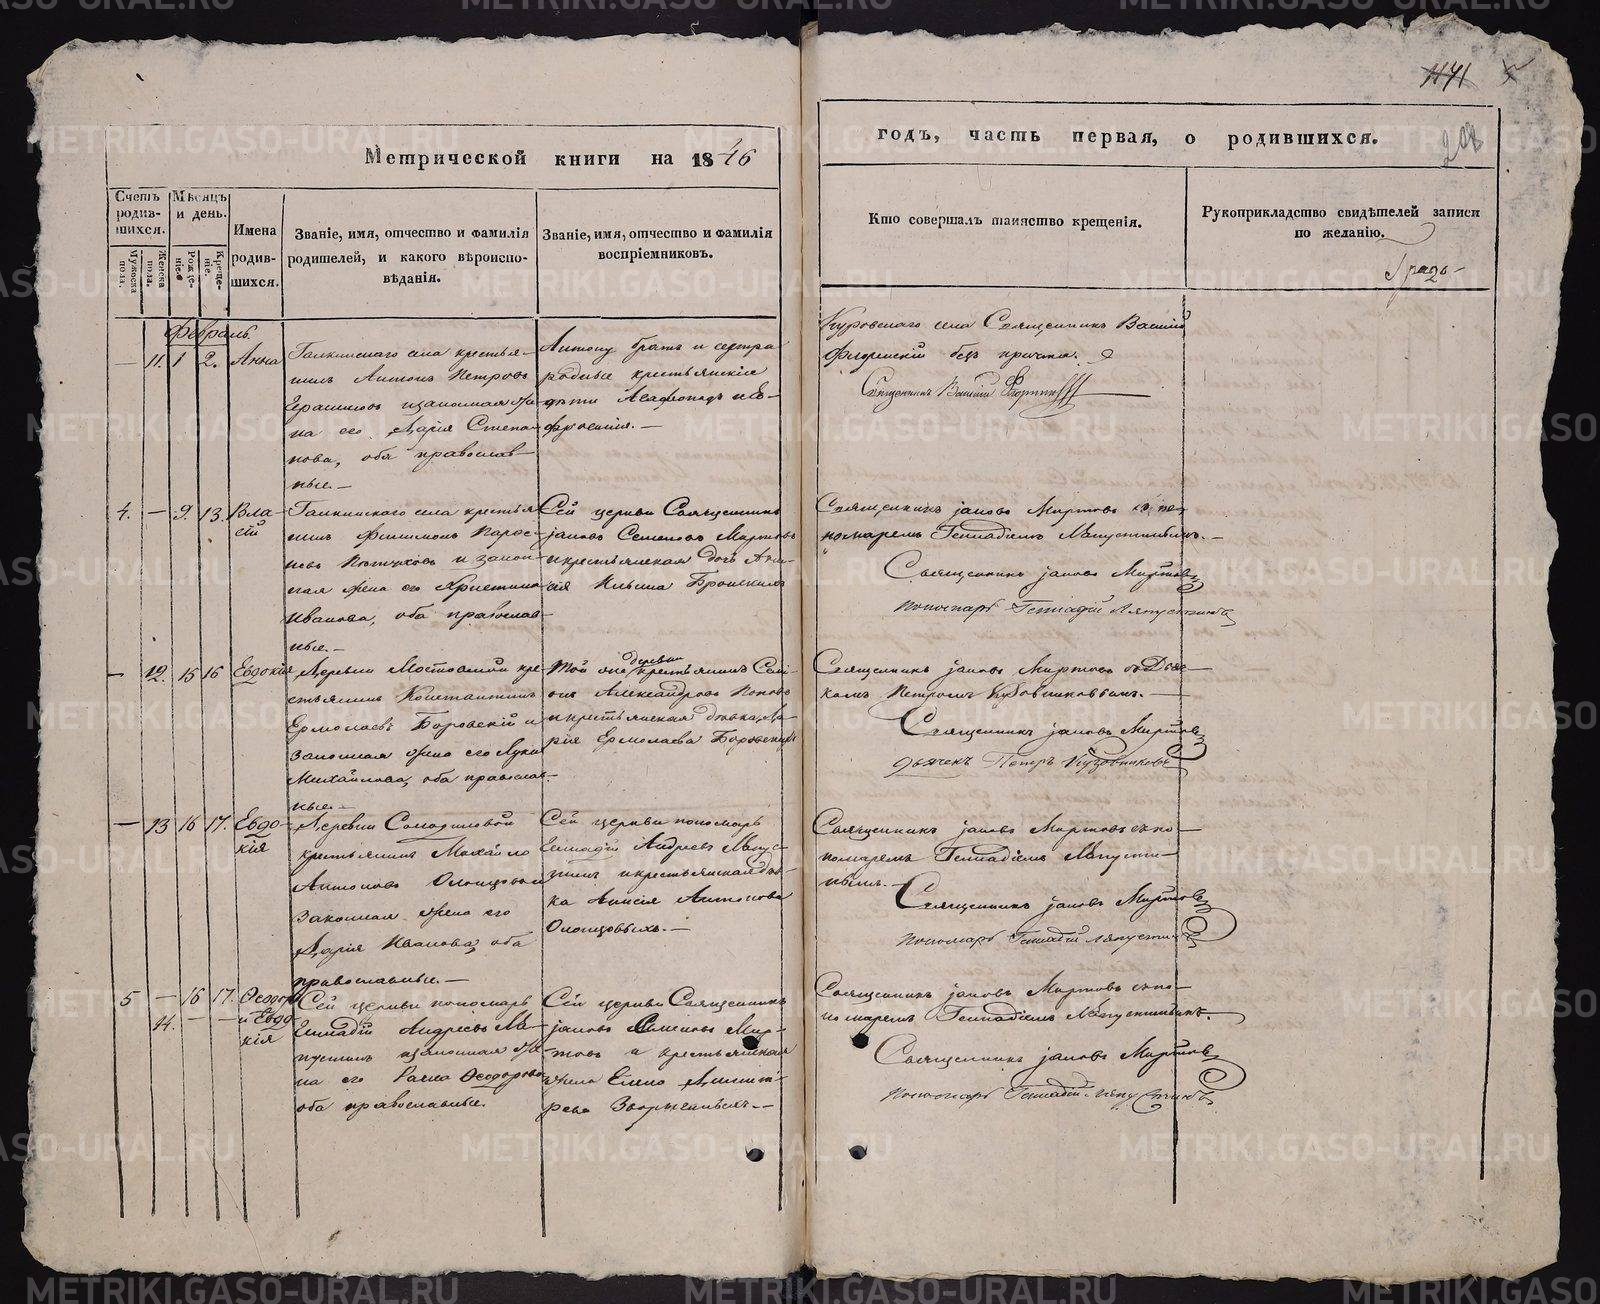 1171
Метрической книги на 1846
годъ, часть первая, о родившихся.
Счетъ родив-шихся.
Мѣсяцъ и день.
Мужеска пола.
Женска пола.
Рожде-ніе.
Креще-ніе.
Имена родив-шихся.
Званіе, имя, отчество и фамилія
родителей, и какого вѣроиспо-
вѣданія.
Званіе, имя, отчество и фамилія
воспріемниковъ.
Кто совершалъ таинство крещенія.
Рукоприкладство свидѣтелей записи
по желанію.
Февраль.
— 11. 1 2. Анна
Галкинскаго села крестья-
нинъ Антонъ Петровъ
законная же-
на его Дарія Степа-
нова, оба православ-
ные.—
Антону братъ и сестра
родные крестьянскіе
дѣти Агафонодъ и Ев-
фросинія.—
Куровскаго села Священникъ Василій
Флоринскій безъ причта.
Священникъ Василій Флоринскій
4. — 9. 13. Вла-
сій
Галкинскаго села крестья-
нинъ Филимонъ
и закон-
ная жена его Христина
Иванова, оба православ-
ные.—
Сей церкви Священникъ
Іаковъ Семеновъ Миртовъ
и крестьянская дочь
Ильина
Священникъ Іаковъ Миртовъ съ по-
номаремъ Геннадіемъ Лапустинымъ.—
Священникъ Іаковъ Миртовъ
Пономарь Геннадій Лапустинъ
— 12. 15 16 Евдокія
Деревни кре-
стьянинъ Константинъ
Ермолаевъ Боровскій и
законная жена его
Михайлова, оба православ-
ные.—
Той же деревни крестьянинъ
Александровъ Поповъ
и крестьянская дѣвка Да-
рія Ермолаева Боровскихъ
Священникъ Іаковъ Миртовъ съ Дьяч-
комъ Петромъ Кузовниковымъ.—
Священникъ Іаковъ Миртовъ
дьячекъ Петръ Кузовниковъ
— 13 16 17. Евдо-
кія
Деревни
крестьянинъ Михайло
Антоновъ
законная жена его
Дарія Иванова, оба
православные.—
Сей церкви пономарь
Геннадій Андреевъ Лапус-
тинъ и крестьянская дѣв-
ка Анисія Антонова
Священникъ Іаковъ Миртовъ съ по-
номаремъ Геннадіемъ Лапусти-
нымъ.—
Священникъ Іаковъ Миртовъ
Пономарь Геннадій Лапустинъ
5 — 16 17. Ѳеодоръ
14. — — и Евдо
кія
Сей церкви пономарь
Геннадій Андреевъ Ла-
пустинъ и законная же-
на его Ѳеодорова
оба православные.
Сей церкви Священникъ
Іаковъ Симеоновъ Мир-
товъ и крестьянская
жена Елена Димит-
рева
Священникъ Іаковъ Миртовъ съ по-
номаремъ Геннадіемъ Лапустинымъ.
Священникъ Іаковъ Миртовъ
Пономарь Геннадій Лапустинъ
METRIKI.GASO-URAL.RU